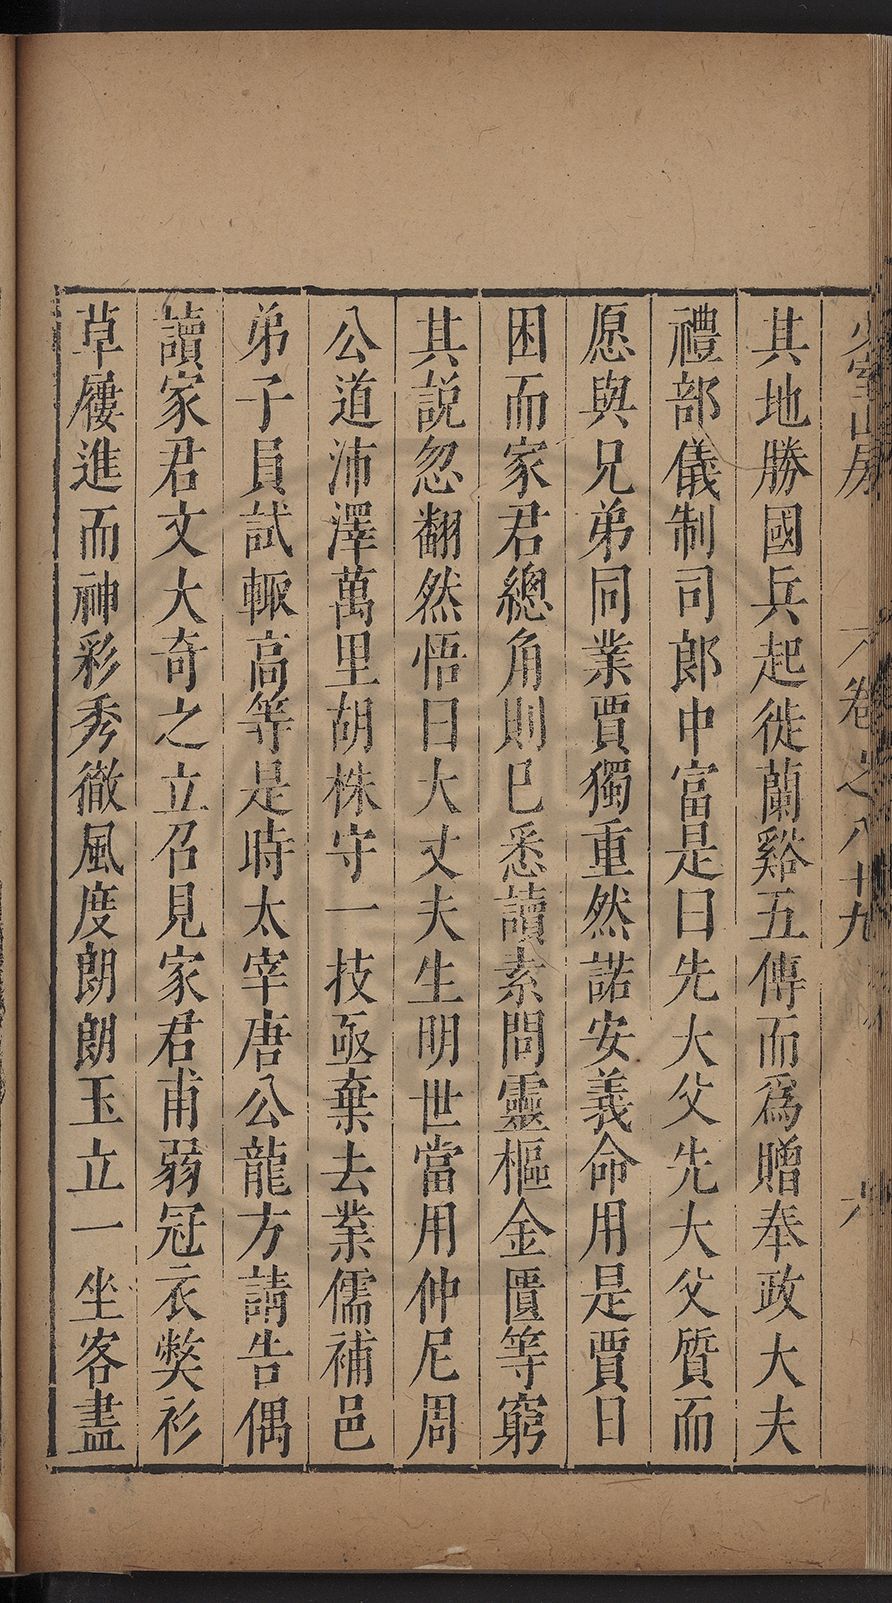 少室山房 卷之八十九 六
其地勝國兵起徙蘭谿五傳而爲贈奉政大夫
禮部儀制司郎中富是曰先大父先大父質而
愿與兄弟同業賈獨重然諾安義命用是賈日
困而家君總角則已悉讀素問靈樞金匱等窮
其説忽翻然悟曰大丈夫生明世當用仲尼周
公道沛澤萬里胡株守一技亟棄去業儒補邑
弟子員試輙高等是時太宰唐公龍方請告偶
讀家君文大奇之立召見家君甫弱冠衣獘衫
草屨進而神彩秀徹風度朗朗玉立一坐客盡